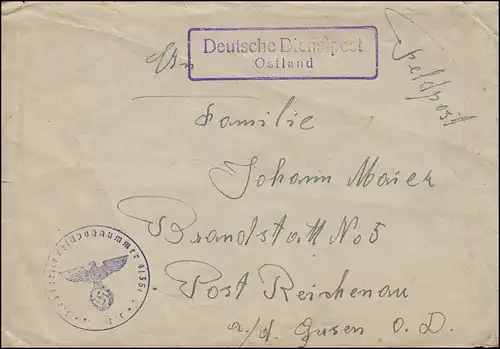 Deutsche Dienstpost
Ostland
Feldpost
An
Familie
Johann Maier
Brandstatt No 5
Post Reichenau
a./d. Gusen O. D.
Feldpostnummer